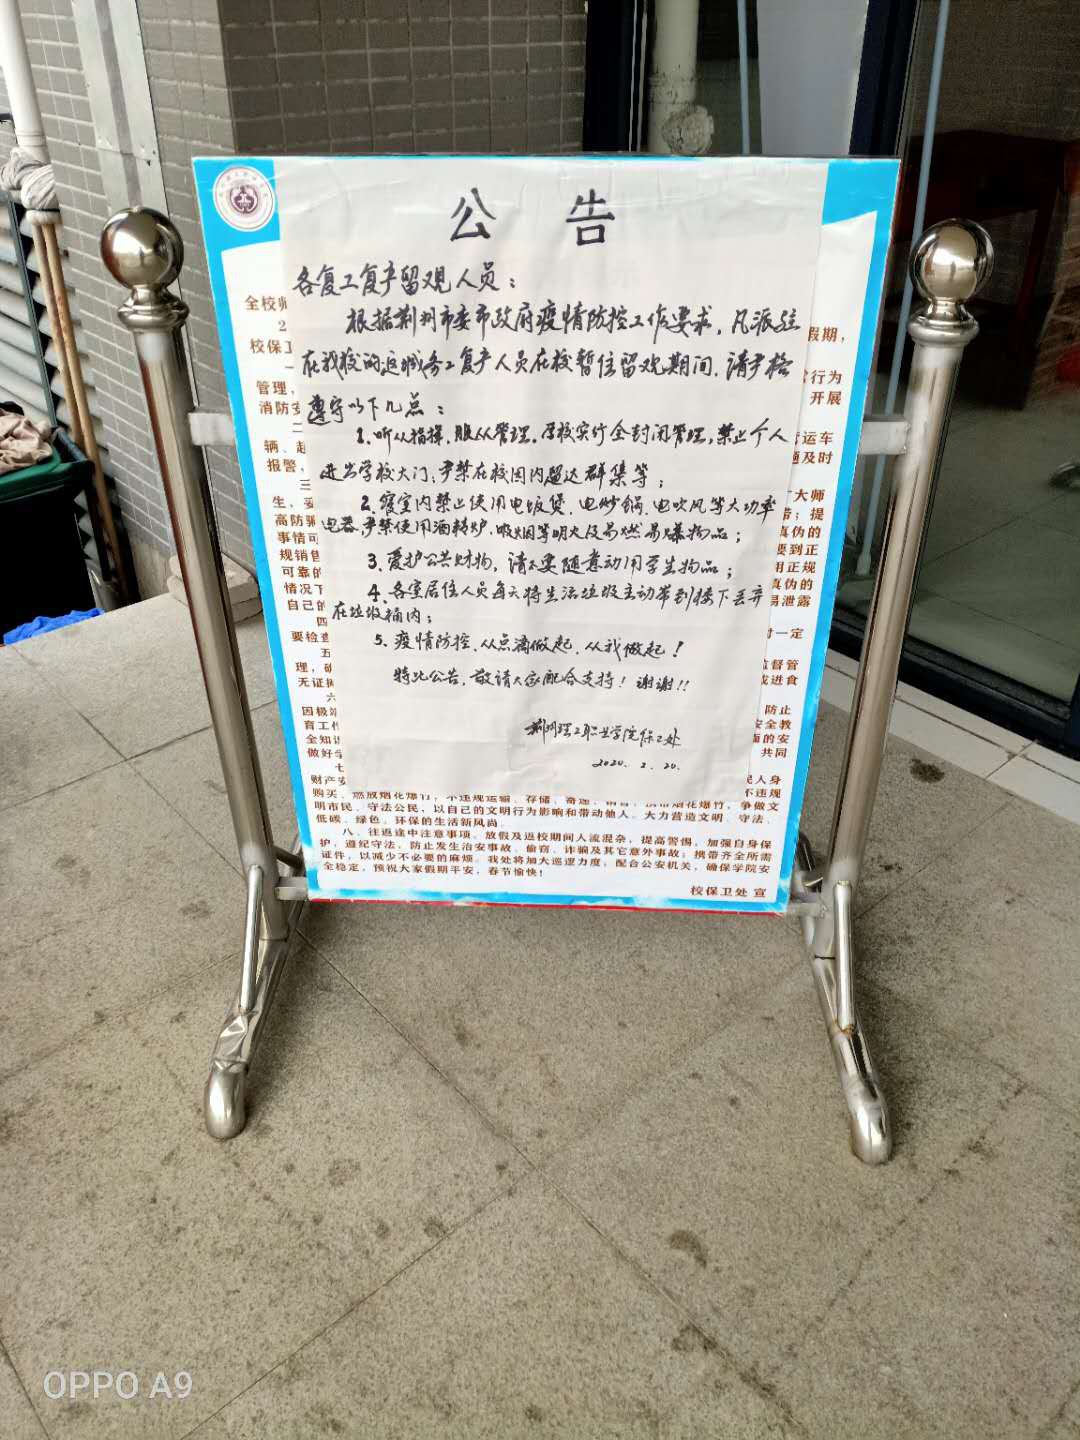 公 告
各复工复产留观人员：
根据荆州市委市政府疫情防控工作要求，凡派驻
在我校的返城务工复产人员在校暂住留观期间，请严格
遵守以下几点：
1. 听从指挥，服从管理，学校实行全封闭管理，禁止个人
进出学校大门；严禁在校园内超达群集等；
2、寝室内禁止使用电饭煲、电炒锅、电吹风等大功率
电器，严禁使用酒精炉、吸烟等明火及易燃易爆物品；
3、爱护公共财物，请不要随意动用学生物品；
4、各室居住人员每天将生活垃圾主动带到楼下丢弃
在垃圾桶内；
5. 疫情防控，从点滴做起，从我做起！
特此公告，敬请大家配合支持！谢谢!!
荆州理工职业学院保卫处
2020. 2. 20.
全校师
2
校保卫
假期，
一
管理，
行为
消防安
开展
二
辆、
运车
报警，
及时
三
大师
生，
高防骗
；提
事情可
真伪的
规销售
要到正
可靠的
用正规
情况下
真伪的
自己的
易泄露
四
要检查
一定
五
理，
监督管
无证
进食
六
因极
防止
育工作
安全教
全知识
的安
做好
共同
七
财产安
民人身
购买、燃放烟花爆竹，不违规运输、存储、寄递、销售、携带烟花爆竹，争做文
不违规
明市民、守法公民，以自己的文明行为影响和带动他人。大力营造文明、守法、
低碳、绿色、环保的生活新风尚。
八、往返途中注意事项。放假及返校期间人流混杂，提高警惕，加强自身保
护，遵纪守法，防止发生治安事故、偷窃、诈骗及其它意外事故；携带齐全所需
证件，以减少不必要的麻烦。我处将加大巡逻力度，配合公安机关，确保学院安
全稳定，预祝大家假期平安，春节愉快！
校保卫处 宣
OPPO A9